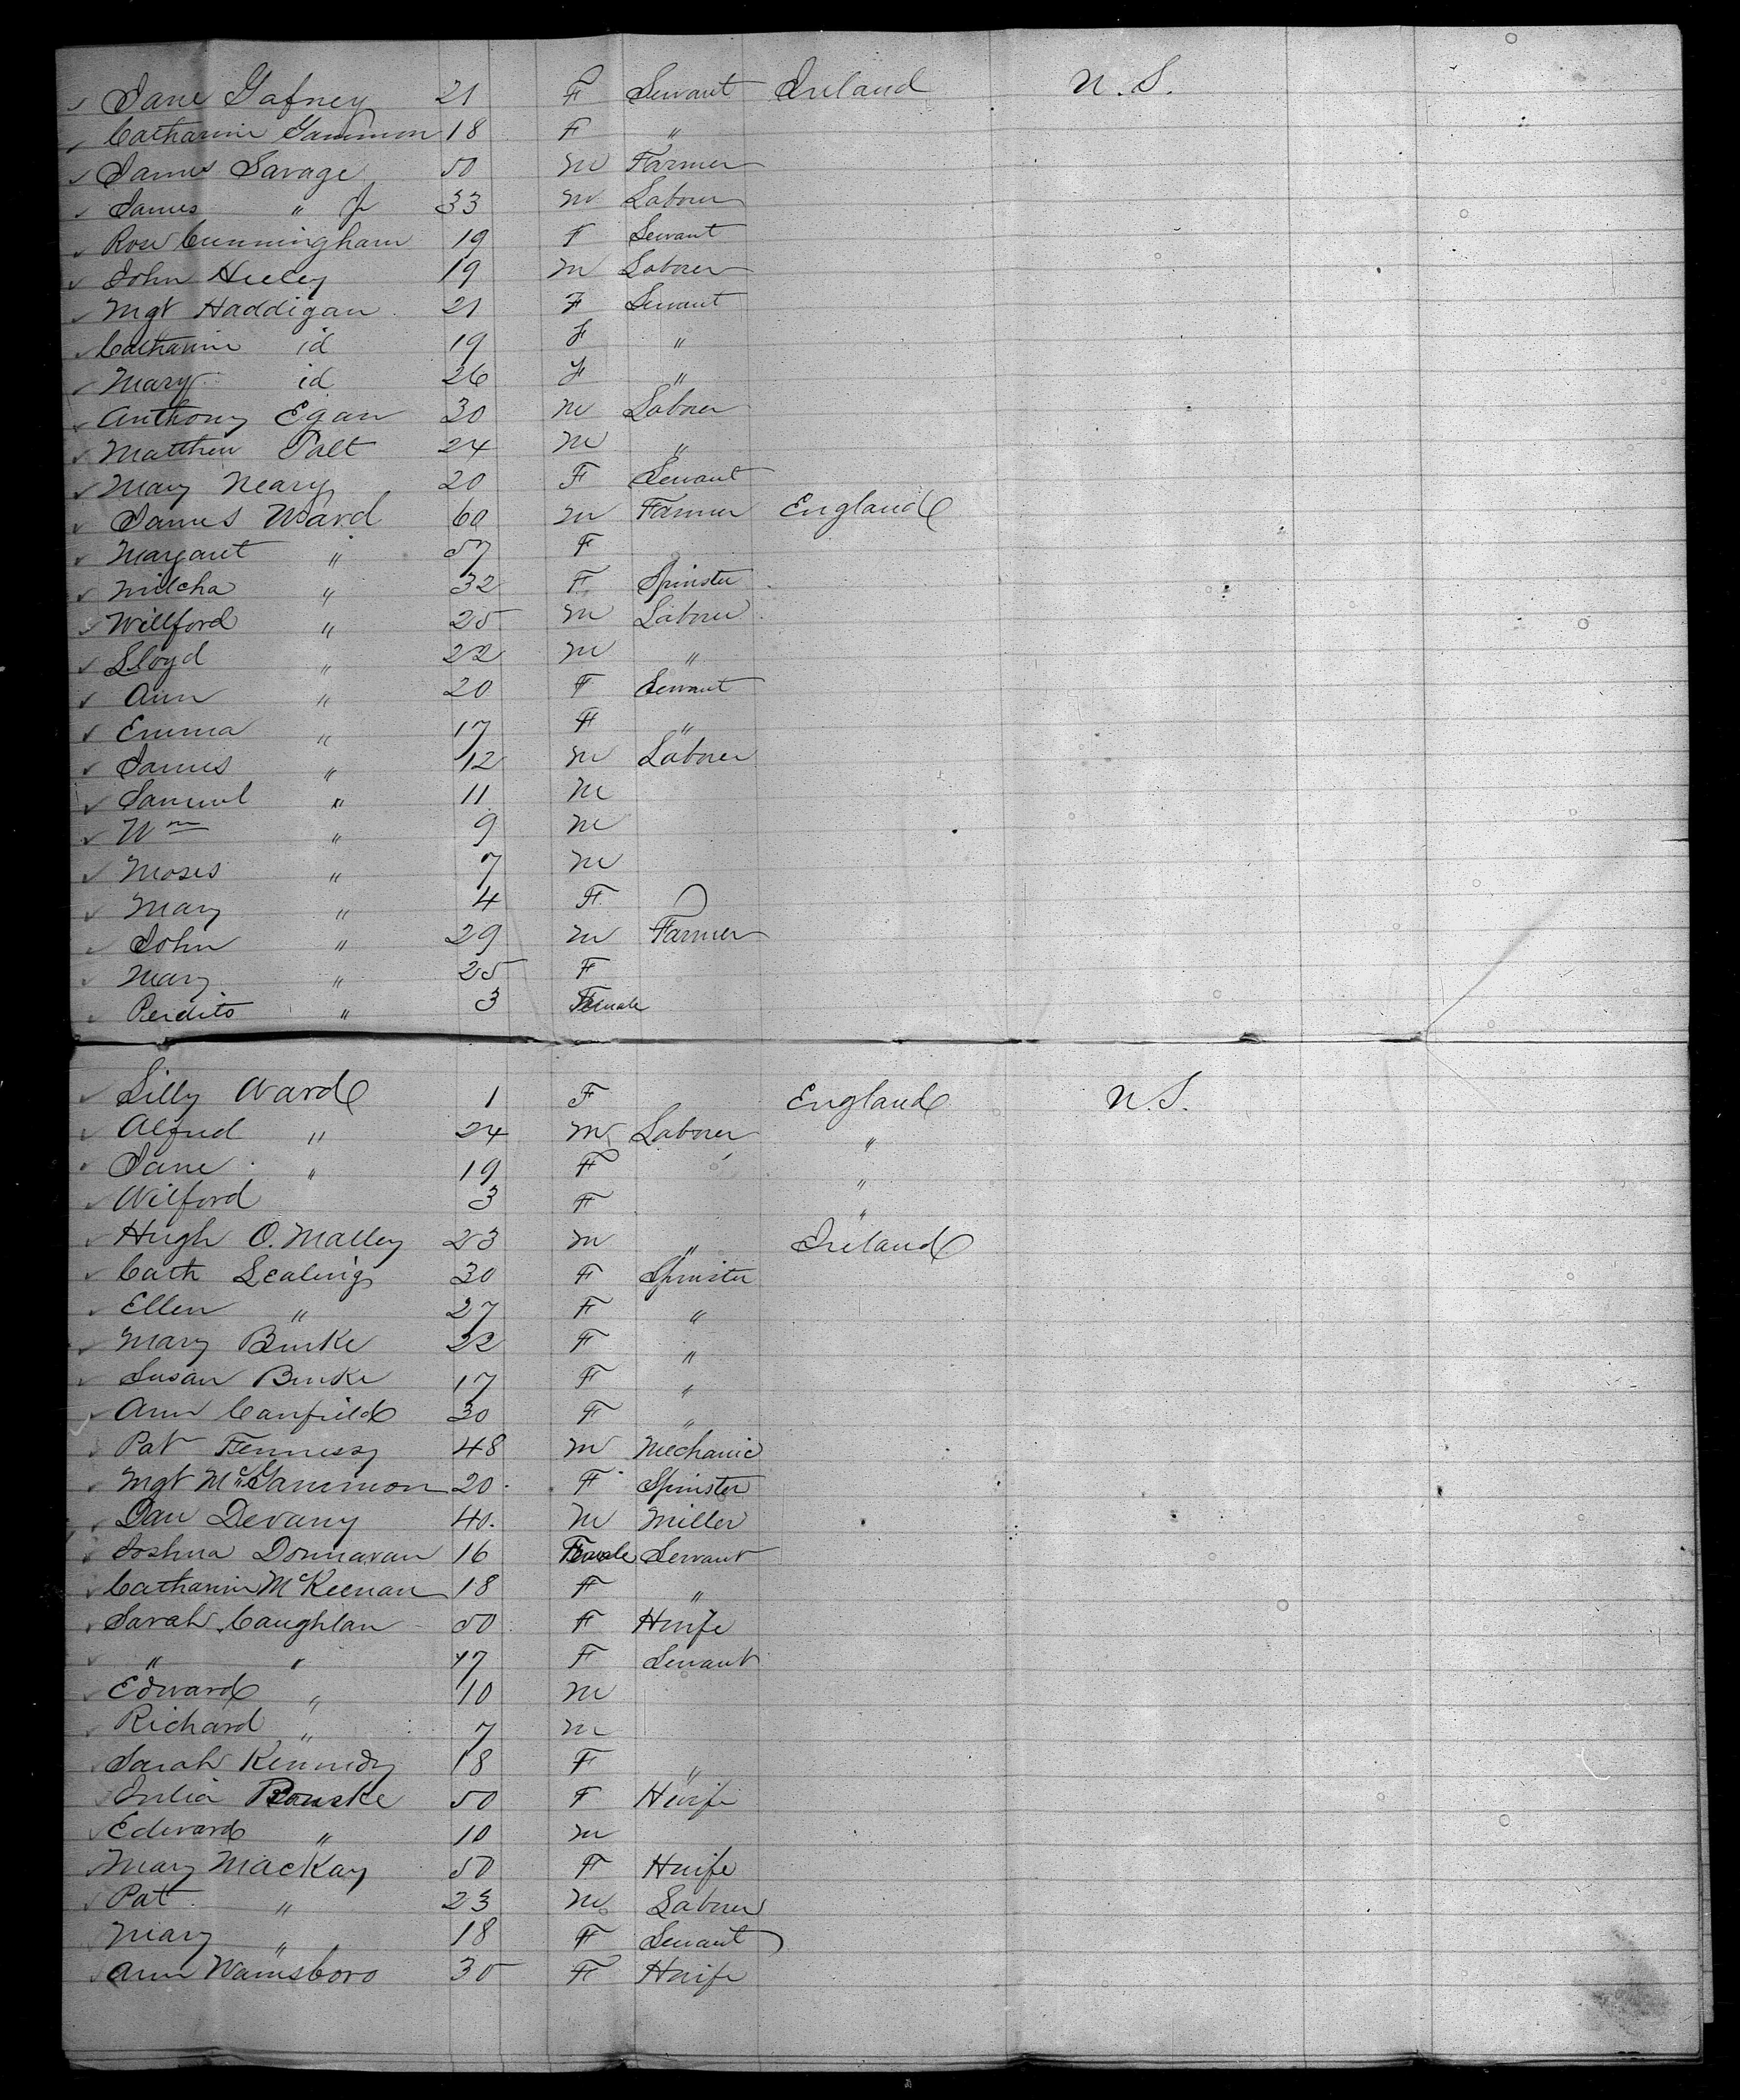 Jane Gafney 21 F Servant Ireland U.S.
Catharine Gammon 18 F "
James Savage 50 M Farmer
James " Jr 33 M Laborer
Rose Cunningham 19 F Servant
John Heeley 19 M Laborer
Mgt Haddigan 21 F Servant
Catharine id 19 F "
Mary id 26 F "
Anthony Egan 30 M Laborer
Matthew Palt 24 M "
Mary Neary 20 F Servant
James Ward 60 M Farmer England
Margaret " 57 F
Milcha " 32 F Spinster
Willford " 25 M Laborer
Lloyd " 22 M "
Ann " 20 F Servant
Emma " 17 F "
James " 12 M Laborer
Samuel " 11 M
Wm " 9 M
Moses " 7 M
Mary " 4 F
John " 29 M Farmer
Mary " 25 F
Perdito " 3 Female
Lilly Ward 1 F England U.S.
Alfred " 24 M Laborer "
Jane " 19 F "
Wilford 3 F "
Hugh O. Malley 23 M " Ireland
Cath Scalings 30 F Spinster
Ellen " 27 F "
Mary Burke 22 F "
Susan Burke 17 F "
Ann Canfield 30 F "
Pat Fennessy 48 M Mechanic
Mgt McGammon 20 F Spinster
Dan Devany 40 M Miller
Joshua Donnavan 16 Female Servant
Catharine McKeenan 18 F "
Sarah Caughlan 50 F Hwife
" " 17 F Servant
Edward " 10 M
Richard " 7 M
Sarah Kennedy 18 F "
Julia 50 F Hwife
Edward " 10 M
Mary MacKay 50 F Hwife
Pat " 23 M Laborer
Mary " 18 F Servant
Ann Wamsboro 30 F Hwife